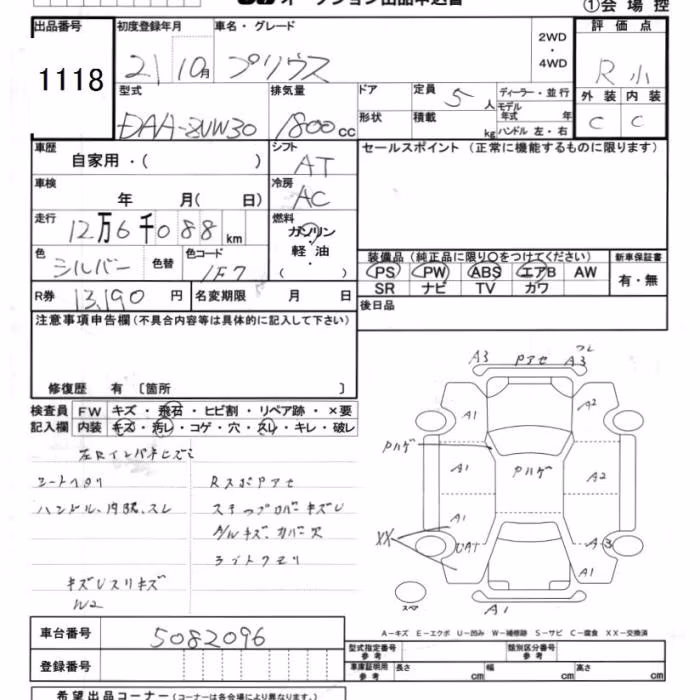 オークション出品申込書
①会場控
出品番号
1118
初度登録年月
21 10月
車名・グレード
プリウス
2WD
・
4WD
評価点
R小
外装 内装
C C
型式
DAA-ZVW30
排気量
1800cc
ドア
定員
5人
ディーラー・並行
形状
積載
kg
モデル年式 年
ハンドル 左・右
車歴
自家用・( )
シフト
AT
セールスポイント(正常に機能するものに限ります)
車検
年 月( 日)
冷房
AC
走行
12万6千088km
燃料
ガソリン
軽油
・
( )
色
シルバー
色替
色コード
1F7
装備品(純正品に限り○をつけてください)
PS PW ABS エアB AW
SR ナビ TV カワ
新車保証書
有・無
R券
13,190円
名変期限 月 日
後日品
注意事項申告欄(不具合内容等は具体的に記入して下さい)
修復歴 有〔箇所 〕
検査員記入欄
FW キズ・飛石・ヒビ割・リペア跡・×要
内装 キズ・汚レ・コゲ・穴・スレ・キレ・破レ
シートヘタリ
ハンドル、内張、スレ
RスポPアセ
ステップカバーキズU
ライトクモリ
キズUスリキズ
W2
A3 Pアセ A3
A1 A2
Pハゲ
Pハゲ
A1 A2
A1
XX
UAT
A3
A1
A1
スペア
A－キズ E－エクボ U－凹み W－補修跡 S－サビ C－腐食 XX－交換済
車台番号
5082096
登録番号
型式指定番号
参考
類別区分番号
参考
車庫証明用
参考
長さ cm
幅 cm
高さ cm
希望出品コーナー(コーナーは各会場により異なります。)